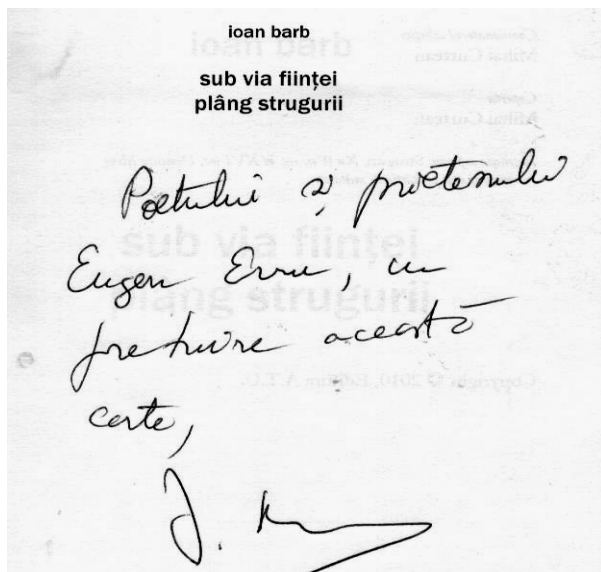 ioan barb
sub via ființei
plâng strugurii
Poetului și prietenului
Eugen Evu, cu
prețuire această
carte,